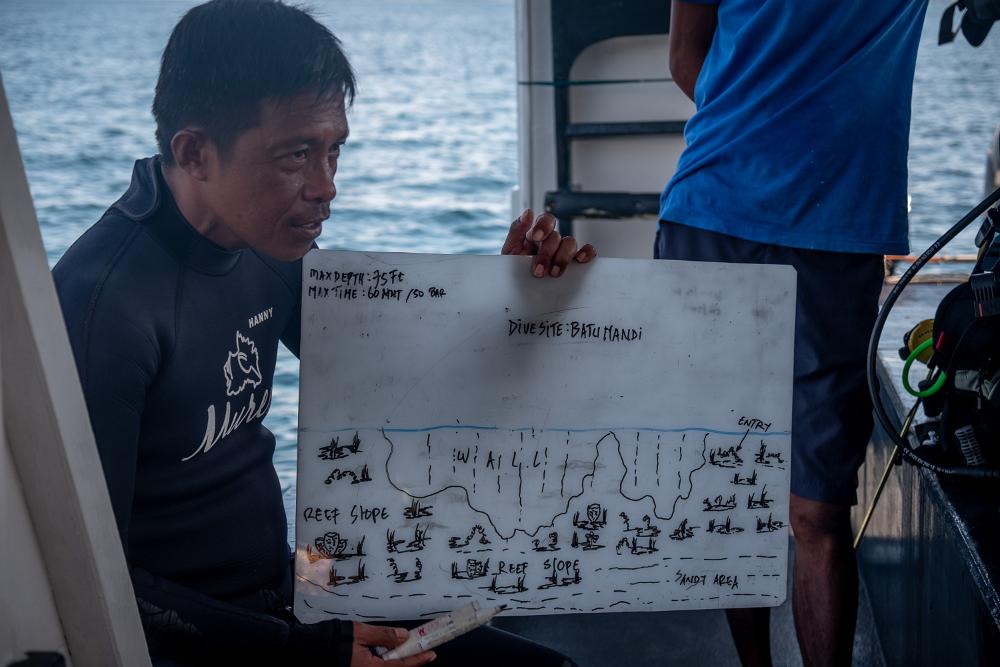 MAX DEPTH : 75 Ft
MAX TIME : 60 MNT / 50 BAR
DIVE SITE : BATU MANDI
ENTRY
WALL
REEF SLOPE
REEF SLOPE
SANDY AREA
HANNY